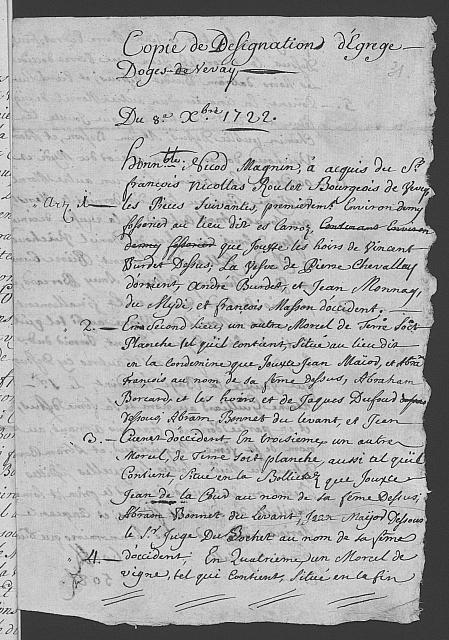 Copie de Designation d'Egrege
Doges de Vevay
Du 8e Xbre 1722.
Honnble Nicod Magnin, à acquis du Sr
françois Nicollas Roulet Bourgeois de Vevey
Art. 1 les Pieces Suivantes, premierement Environ demy
fossorier au lieu dit es Carroz Contenant Environ
demey fossorier que Jouxte les hoirs de Vincent
Burdet Dessus, La Vefve de Pierre Chevalley
d'orient, Andre Burdet, et Jean Monnay,
du Mydi, et françois Masson d'occident.
2. En Second lieu, un autre Morcel de Terre Soit
Planche tel quil contient, Situe au lieu dit
en la Condemine que Jouxte Jean Maior, et Abra
françois au nom de sa feme dessus, Abraham
Borcard, et les hoirs et de Jaques Dufour
dessous, Abram Bonnet du levant, et Jean
3. d'occident. En troisieme, un autre
Morcel, de Terre Soit planche, aussi tel quil
Contient, Situé en la que Jouxte
Jean de la Cud au nom de sa feme Dessus,
Abram Bonnet du levant, Jean Maijor Dessous
le Sr. Juge Du Bochet au nom de sa feme
4. d'occident. En Quatrieme un Morcel de
vigne, tel qui Contient, Situé en la fin